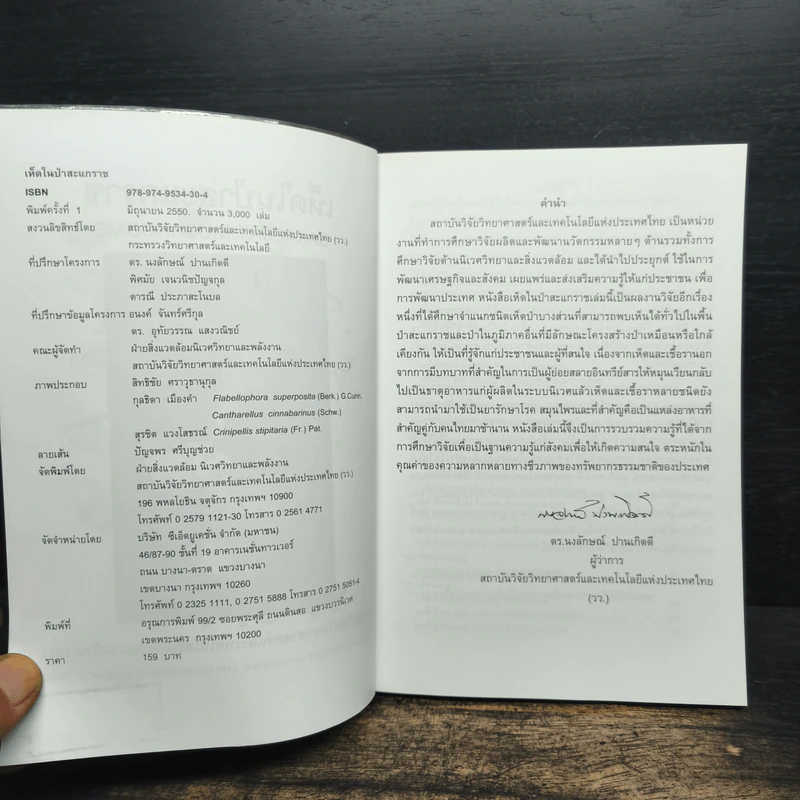 เห็ดในป่าสะแกราช
ISBN 978-974-9534-30-4
พิมพ์ครั้งที่ 1 มิถุนายน 2550. จำนวน 3,000 เล่ม
สงวนลิขสิทธิ์โดย สถาบันวิจัยวิทยาศาสตร์และเทคโนโลยีแห่งประเทศไทย (วว.)
กระทรวงวิทยาศาสตร์และเทคโนโลยี
ที่ปรึกษาโครงการ ดร. นงลักษณ์ ปานเกิดดี
พิศมัย เจนวนิชปัญจกุล
ดารณี ประภาสะโนบล
ที่ปรึกษาข้อมูลโครงการ อนงค์ จันทร์ศรีกุล
ดร. อุทัยวรรณ แสงวณิชย์
คณะผู้จัดทำ ฝ่ายสิ่งแวดล้อมนิเวศวิทยาและพลังงาน
สถาบันวิจัยวิทยาศาสตร์และเทคโนโลยีแห่งประเทศไทย (วว.)
ภาพประกอบ สิทธิชัย ศราวุธานุกุล
กุลธิดา เมืองคำ Flabellophora superposita (Berk.) G.Cunn.
Cantharellus cinnabarinus (Schw.)
สุรชิต แวงโสธรณ์ Crinipellis stipitaria (Fr.) Pat.
ลายเส้น ปัญจพร ศรีบุญช่วย
จัดพิมพ์โดย ฝ่ายสิ่งแวดล้อม นิเวศวิทยาและพลังงาน
สถาบันวิจัยวิทยาศาสตร์และเทคโนโลยีแห่งประเทศไทย (วว.)
196 พหลโยธิน จตุจักร กรุงเทพฯ 10900
โทรศัพท์ 0 2579 1121-30 โทรสาร 0 2561 4771
จัดจำหน่ายโดย บริษัท ซีเอ็ดยูเคชั่น จำกัด (มหาชน)
46/87-90 ชั้นที่ 19 อาคารเนชั่นทาวเวอร์
ถนน บางนา-ตราด แขวงบางนา
เขตบางนา กรุงเทพฯ 10260
โทรศัพท์ 0 2325 1111, 0 2751 5888 โทรสาร 0 2751 5051-4
พิมพ์ที่ อรุณการพิมพ์ 99/2 ซอยพระศุลี ถนนดินสอ แขวงบวรนิเวศ
เขตพระนคร กรุงเทพฯ 10200
ราคา 159 บาท
คำนำ
สถาบันวิจัยวิทยาศาสตร์และเทคโนโลยีแห่งประเทศไทย เป็นหน่วย
งานที่ทำการศึกษาวิจัยผลิตและพัฒนานวัตกรรมหลายๆ ด้านรวมทั้งการ
ศึกษาวิจัยด้านนิเวศวิทยาและสิ่งแวดล้อม และได้นำไปประยุกต์ ใช้ในการ
พัฒนาเศรษฐกิจและสังคม เผยแพร่และส่งเสริมความรู้ให้แก่ประชาชน เพื่อ
การพัฒนาประเทศ หนังสือเห็ดในป่าสะแกราชเล่มนี้เป็นผลงานวิจัยอีกเรื่อง
หนึ่งที่ได้ศึกษาจำแนกชนิดเห็ดป่าบางส่วนที่สามารถพบเห็นได้ทั่วไปในพื้น
ป่าสะแกราชและป่าในภูมิภาคอื่นที่มีลักษณะโครงสร้างป่าเหมือนหรือใกล้
เคียงกัน ให้เป็นที่รู้จักแก่ประชาชนและผู้ที่สนใจ เนื่องจากเห็ดและเชื้อรานอก
จากการมีบทบาทที่สำคัญในการเป็นผู้ย่อยสลายอินทรีย์สารให้หมุนเวียนกลับ
ไปเป็นธาตุอาหารแก่ผู้ผลิตในระบบนิเวศแล้วเห็ดและเชื้อราหลายชนิดยัง
สามารถนำมาใช้เป็นยารักษาโรค สมุนไพรและที่สำคัญคือเป็นแหล่งอาหารที่
สำคัญคู่กับคนไทยมาช้านาน หนังสือเล่มนี้จึงเป็นการรวบรวมความรู้ที่ได้จาก
การศึกษาวิจัยเพื่อเป็นฐานความรู้แก่สังคมเพื่อให้เกิดความสนใจ ตระหนักใน
คุณค่าของความหลากหลายทางชีวภาพของทรัพยากรธรรมชาติของประเทศ
ดร.นงลักษณ์ ปานเกิดดี
ผู้ว่าการ
สถาบันวิจัยวิทยาศาสตร์และเทคโนโลยีแห่งประเทศไทย
(วว.)